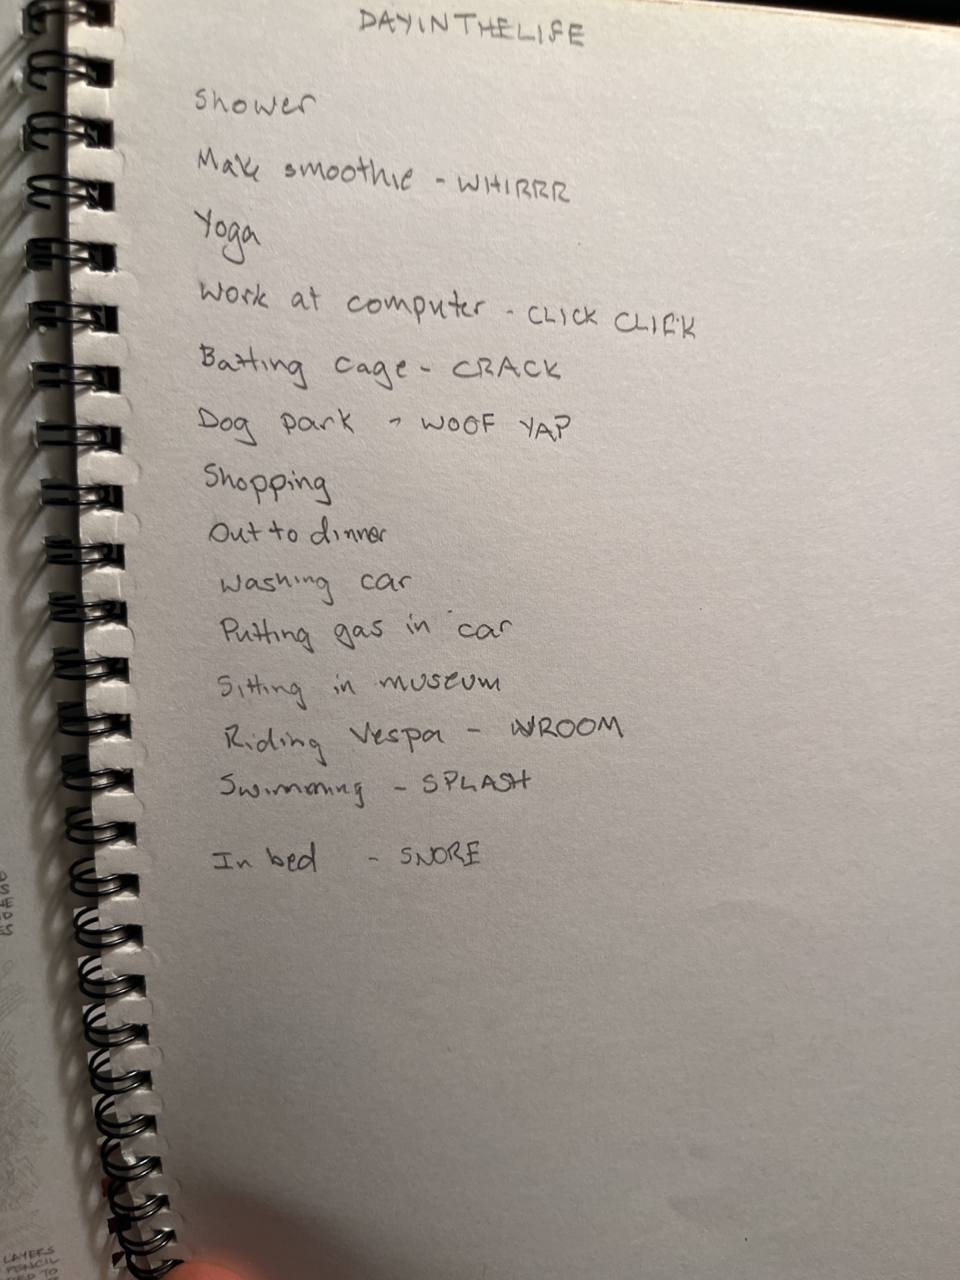 DAYINTHELIFE
Shower
Make smoothie - WHIRRR
Yoga
Work at computer - CLICK CLICK
Batting cage - CRACK
Dog park - WOOF YAP
Shopping
Out to dinner
Washing car
Putting gas in car
Sitting in museum
Riding Vespa - VROOM
Swimming - SPLASH
In bed - SNORE
LAYERS
PENCIL
TO